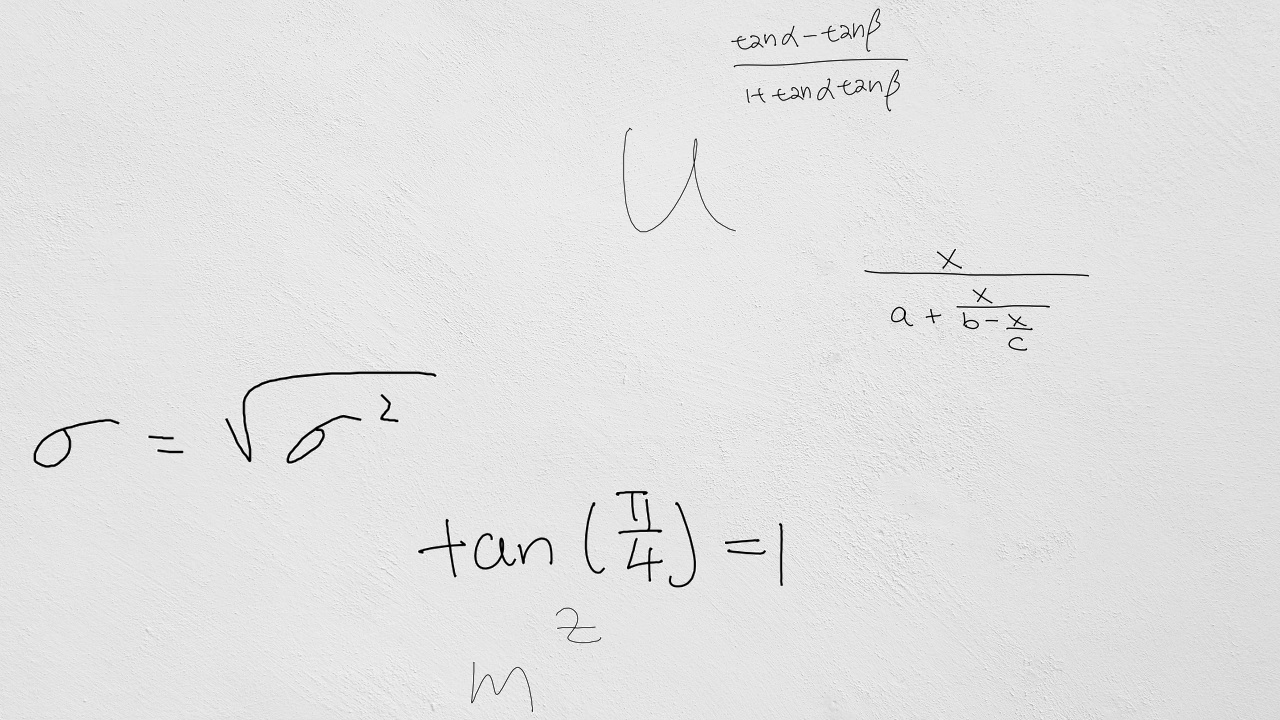 \frac{\tan\alpha - \tan\beta}{1 + \tan\alpha \tan\beta}
u
\frac{x}{a + \frac{x}{b - \frac{x}{c}}}
\sigma = \sqrt{\sigma^2}
\tan\left(\frac{\pi}{4}\right) = 1
z
m